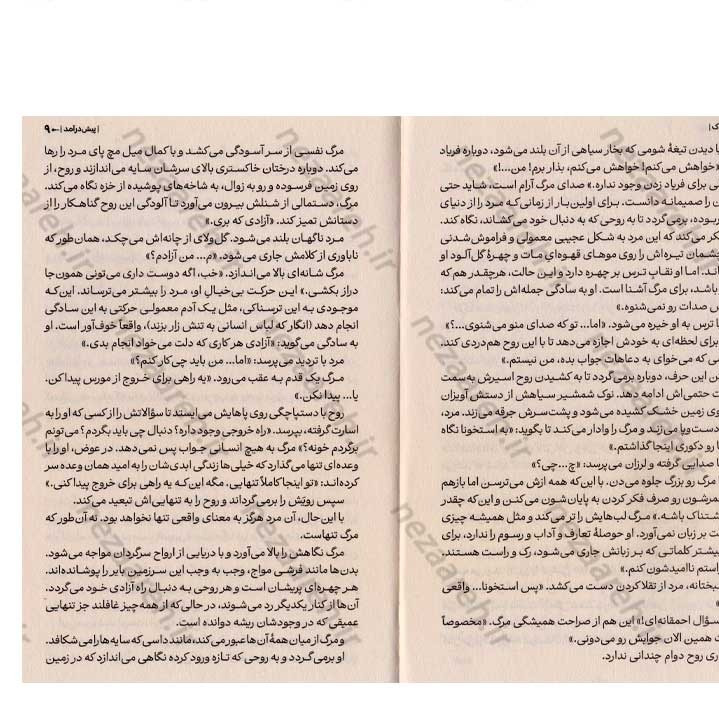 ک |
ا دیدن تیغهٔ شومی که بخار سیاهی از آن بلند می‌شود، دوباره فریاد
«خواهش می‌کنم! خواهش می‌کنم، بذار برم! من...!»
ی برای فریاد زدن وجود نداره.» صدای مرگ آرام است، شاید حتی
ن را صمیمانه دانست. برای اولین‌بار از زمانی‌که مرد را از دنیای
ربوده، برمی‌گردد تا به روحی که به دنبال خود می‌کشاند، نگاه کند.
کر می‌کند که این مرد به شکل عجیبی معمولی و فراموش‌شدنی
شمان تیره‌اش را روی موهای قهوه‌ای مات و چهرهٔ گل‌آلود او
اند. اما او نقاب ترس بر چهره دارد و این حالت، هرچقدر هم که
باشد، برای مرگ آشنا است. او به سادگی جمله‌اش را تمام می‌کند:
س صدات رو نمی‌شنوه.»
ا ترس به او خیره می‌شود. «اما... تو که صدای منو می‌شنوی...؟»
برای لحظه‌ای به خودش اجازه می‌دهد تا با این روح هم‌دردی کند.
سی که می‌خوای به دعاهات جواب بده، من نیستم.»
ین حرف، دوباره برمی‌گردد تا به کشیدن روح اسیرش به‌سمت
ت حتمی‌اش ادامه دهد. نوک شمشیر سیاهش از دستش آویزان
وی زمین خشک کشیده می‌شود و پشت‌سرش جرقه می‌زند. مرد،
دست‌وپا می‌زند و مرگ را وادار می‌کند تا بگوید: «به استخونا نگاه
ا رو دکوری اینجا گذاشتم.»
ا صدایی گرفته و لرزان می‌پرسد: «چ...چی؟»
ا مرگ رو بزرگ جلوه می‌دن. با این‌که همه ازش می‌ترسن اما بازهم
مرشون رو صرف فکر کردن به پایان‌شون می‌کنن و این‌که چقدر
شتناک باشه.» مرگ لب‌هایش را تر می‌کند و مثل همیشه چیزی
ت بر زبان نمی‌آورد. او حوصلهٔ تعارف و آداب و رسوم را ندارد، برای
یشتر کلماتی که بر زبانش جاری می‌شود، رک و راست هستند.
راستم ناامیدشون کنم.»
بختانه، مرد از تقلا کردن دست می‌کشد. «پس استخونا... واقعی
»
سؤال احمقانه‌ای!» این هم از صراحت همیشگی مرگ. «مخصوصاً
ت همین الان جوابش رو می‌دونی.»
ری روح دوام چندانی ندارد.
| پیش‌درآمد | ← ۹
مرگ نفسی از سر آسودگی می‌کشد و با کمال میل مچ پای مرد را رها
می‌کند. دوباره درختان خاکستری بالای سرشان سایه می‌اندازند و روح، از
روی زمین فرسوده و رو به زوال، به شاخه‌های پوشیده از خزه نگاه می‌کند.
مرگ، دستمالی از شنلش بیرون می‌آورد تا آلودگی این روح گناهکار را از
دستانش تمیز کند. «آزادی که بری.»
مرد ناگهان بلند می‌شود. گل‌ولای از چانه‌اش می‌چکد، همان‌طور که
ناباوری از کلامش جاری می‌شود. «م... من آزادم؟»
مرگ شانه‌ای بالا می‌اندازد. «خب، اگه دوست داری می‌تونی همون‌جا
دراز بکشی.» این حرکت بی‌خیالِ او، مرد را بیشتر می‌ترساند. این‌که
موجودی به این ترسناکی، مثل یک آدم معمولی حرکتی به این سادگی
انجام دهد (انگار که لباس انسانی به تنش زار بزند)، واقعاً خوف‌آور است. او
به سادگی می‌گوید: «آزادی هر کاری که دلت می‌خواد انجام بدی.»
مرد با تردید می‌پرسد: «اما... من باید چی‌کار کنم؟»
مرگ یک قدم به عقب می‌رود. «یه راهی برای خروج از مورس پیدا کن.
یا... پیدا نکن.»
روح با دستپاچگی روی پاهایش می‌ایستد تا سؤالاتش را از کسی که او را به
اسارت گرفته، بپرسد. «راه خروجی وجود داره؟ دنبال چی باید بگردم؟ می‌تونم
برگردم خونه؟» مرگ به هیچ انسانی جواب پس نمی‌دهد. در عوض، او را با
وعده‌ای تنها می‌گذارد که خیلی‌ها زندگی ابدی‌شان را به امید همان وعده سر
کرده‌اند: «تو اینجا کاملاً تنهایی، مگه این‌که یه راهی برای خروج پیدا کنی.»
سپس رویَش را برمی‌گرداند و روح را به تنهایی‌اش تبعید می‌کند.
با این‌حال، آن مرد هرگز به معنای واقعی تنها نخواهد بود. نه آن‌طور که
مرگ تنهاست.
مرگ نگاهش را بالا می‌آورد و با دریایی از ارواح سرگردان مواجه می‌شود.
بدن‌ها مانند فرشی مواج، وجب به وجب این سرزمین بایر را پوشانده‌اند.
هر چهره‌ای پریشان است و هر روحی به دنبال راه آزادی خود می‌گردد.
آن‌ها از کنار یکدیگر رد می‌شوند، در حالی‌که از همه‌چیز غافلند جز تنهایی
عمیقی که در وجودشان ریشه دوانده است.
و مرگ از میان همهٔ آن‌ها عبور می‌کند، مانند داسی که سایه‌ها را می‌شکافد.
او برمی‌گردد و به روحی که تازه ورود کرده نگاهی می‌اندازد که در زمین
nezaareh.ir